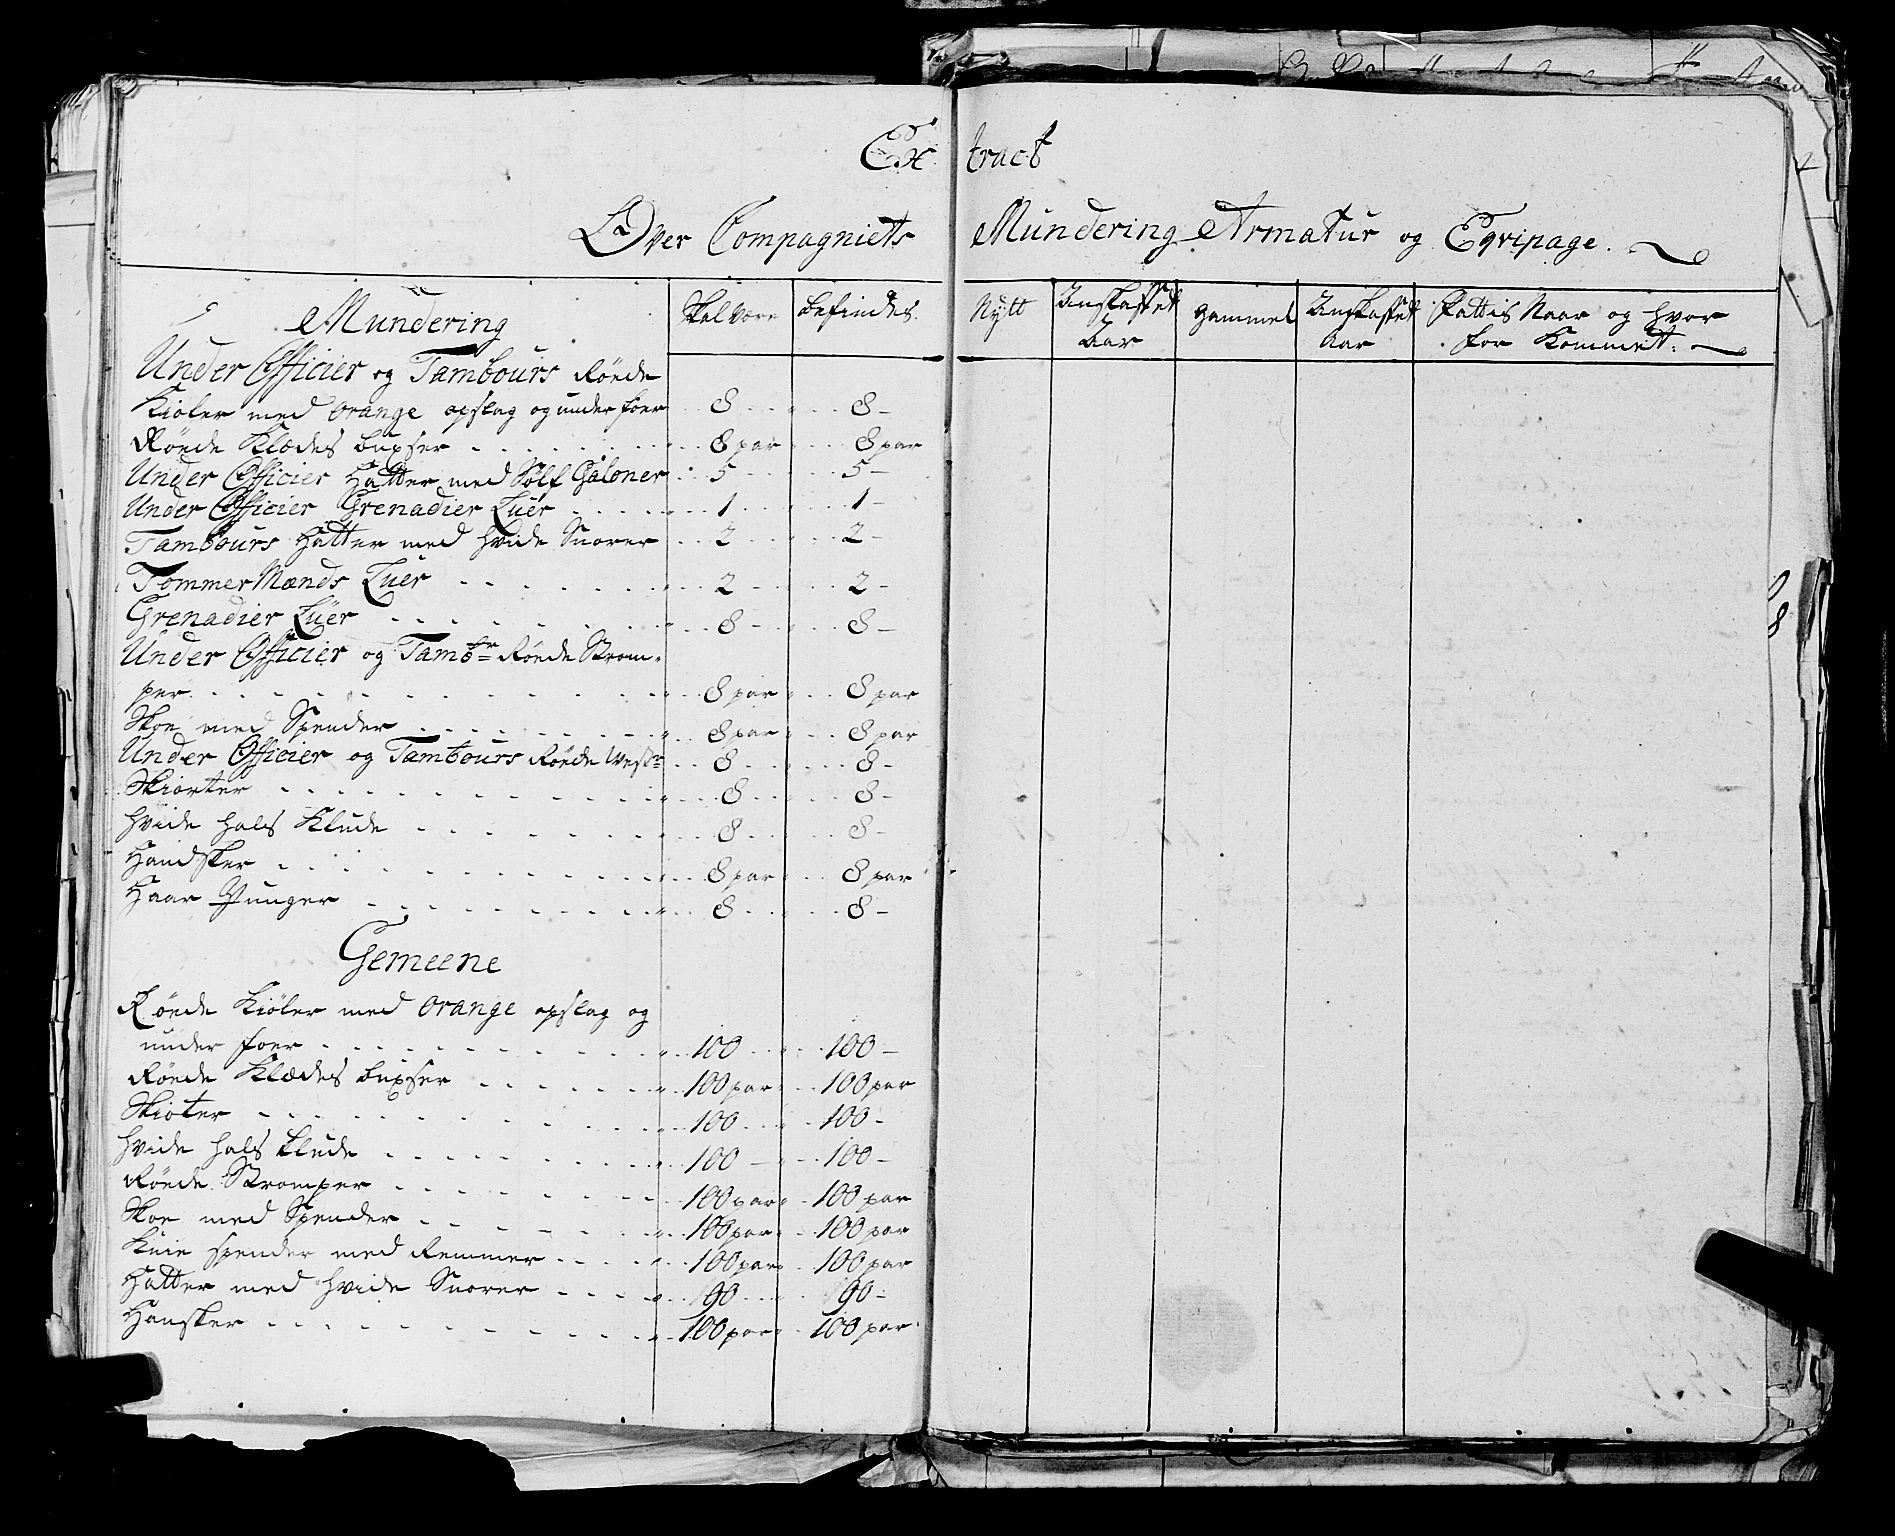 Extract
Over Compagniets Mundering Armatur og Eqvipage.
Mundering Skal være befindes. Nÿtt Anskaffet Aar Gammel Anskaffet Aar Fattis Naar og hvor for Kommet:
Under Officier og Tambours Röede
Kioler med orange opslag og under foer 8 8
Röede Klædes buxser 8 par 8 par
Under Officier Hatter med Sölf Galoner 5 5
Under Officier Grenadier Luer 1 1
Tambours Hatter med hvide Snorer 2 2
Tömmer Mænds Luer 2 2
Grenadier Lüer 8 8
Under Officier og Tambr Röede Strøm-
per 8 par 8 par
Skoe med Spender 8 par 8 par
Under Officier og Tambours Röede Vestr 8 8
Skiorter 8 8
hvide hals Klude 8 8
Handsker 8 par 8 par
Haar Punger 8 8
Gemeene
Röede Kioler med orange opslag og
under foer 100 100
Röede Klædes buxser 100 par 100 par
Skioter 100 100
hvide hals klude 100 100
Röede Stromper 100 par 100 par
Skoe med Spender 100 par 100 par
Knie spender med Remmer 100 par 100 par
Hatter med hvide Snorer 90 90
Hansker 100 par 100 par
8